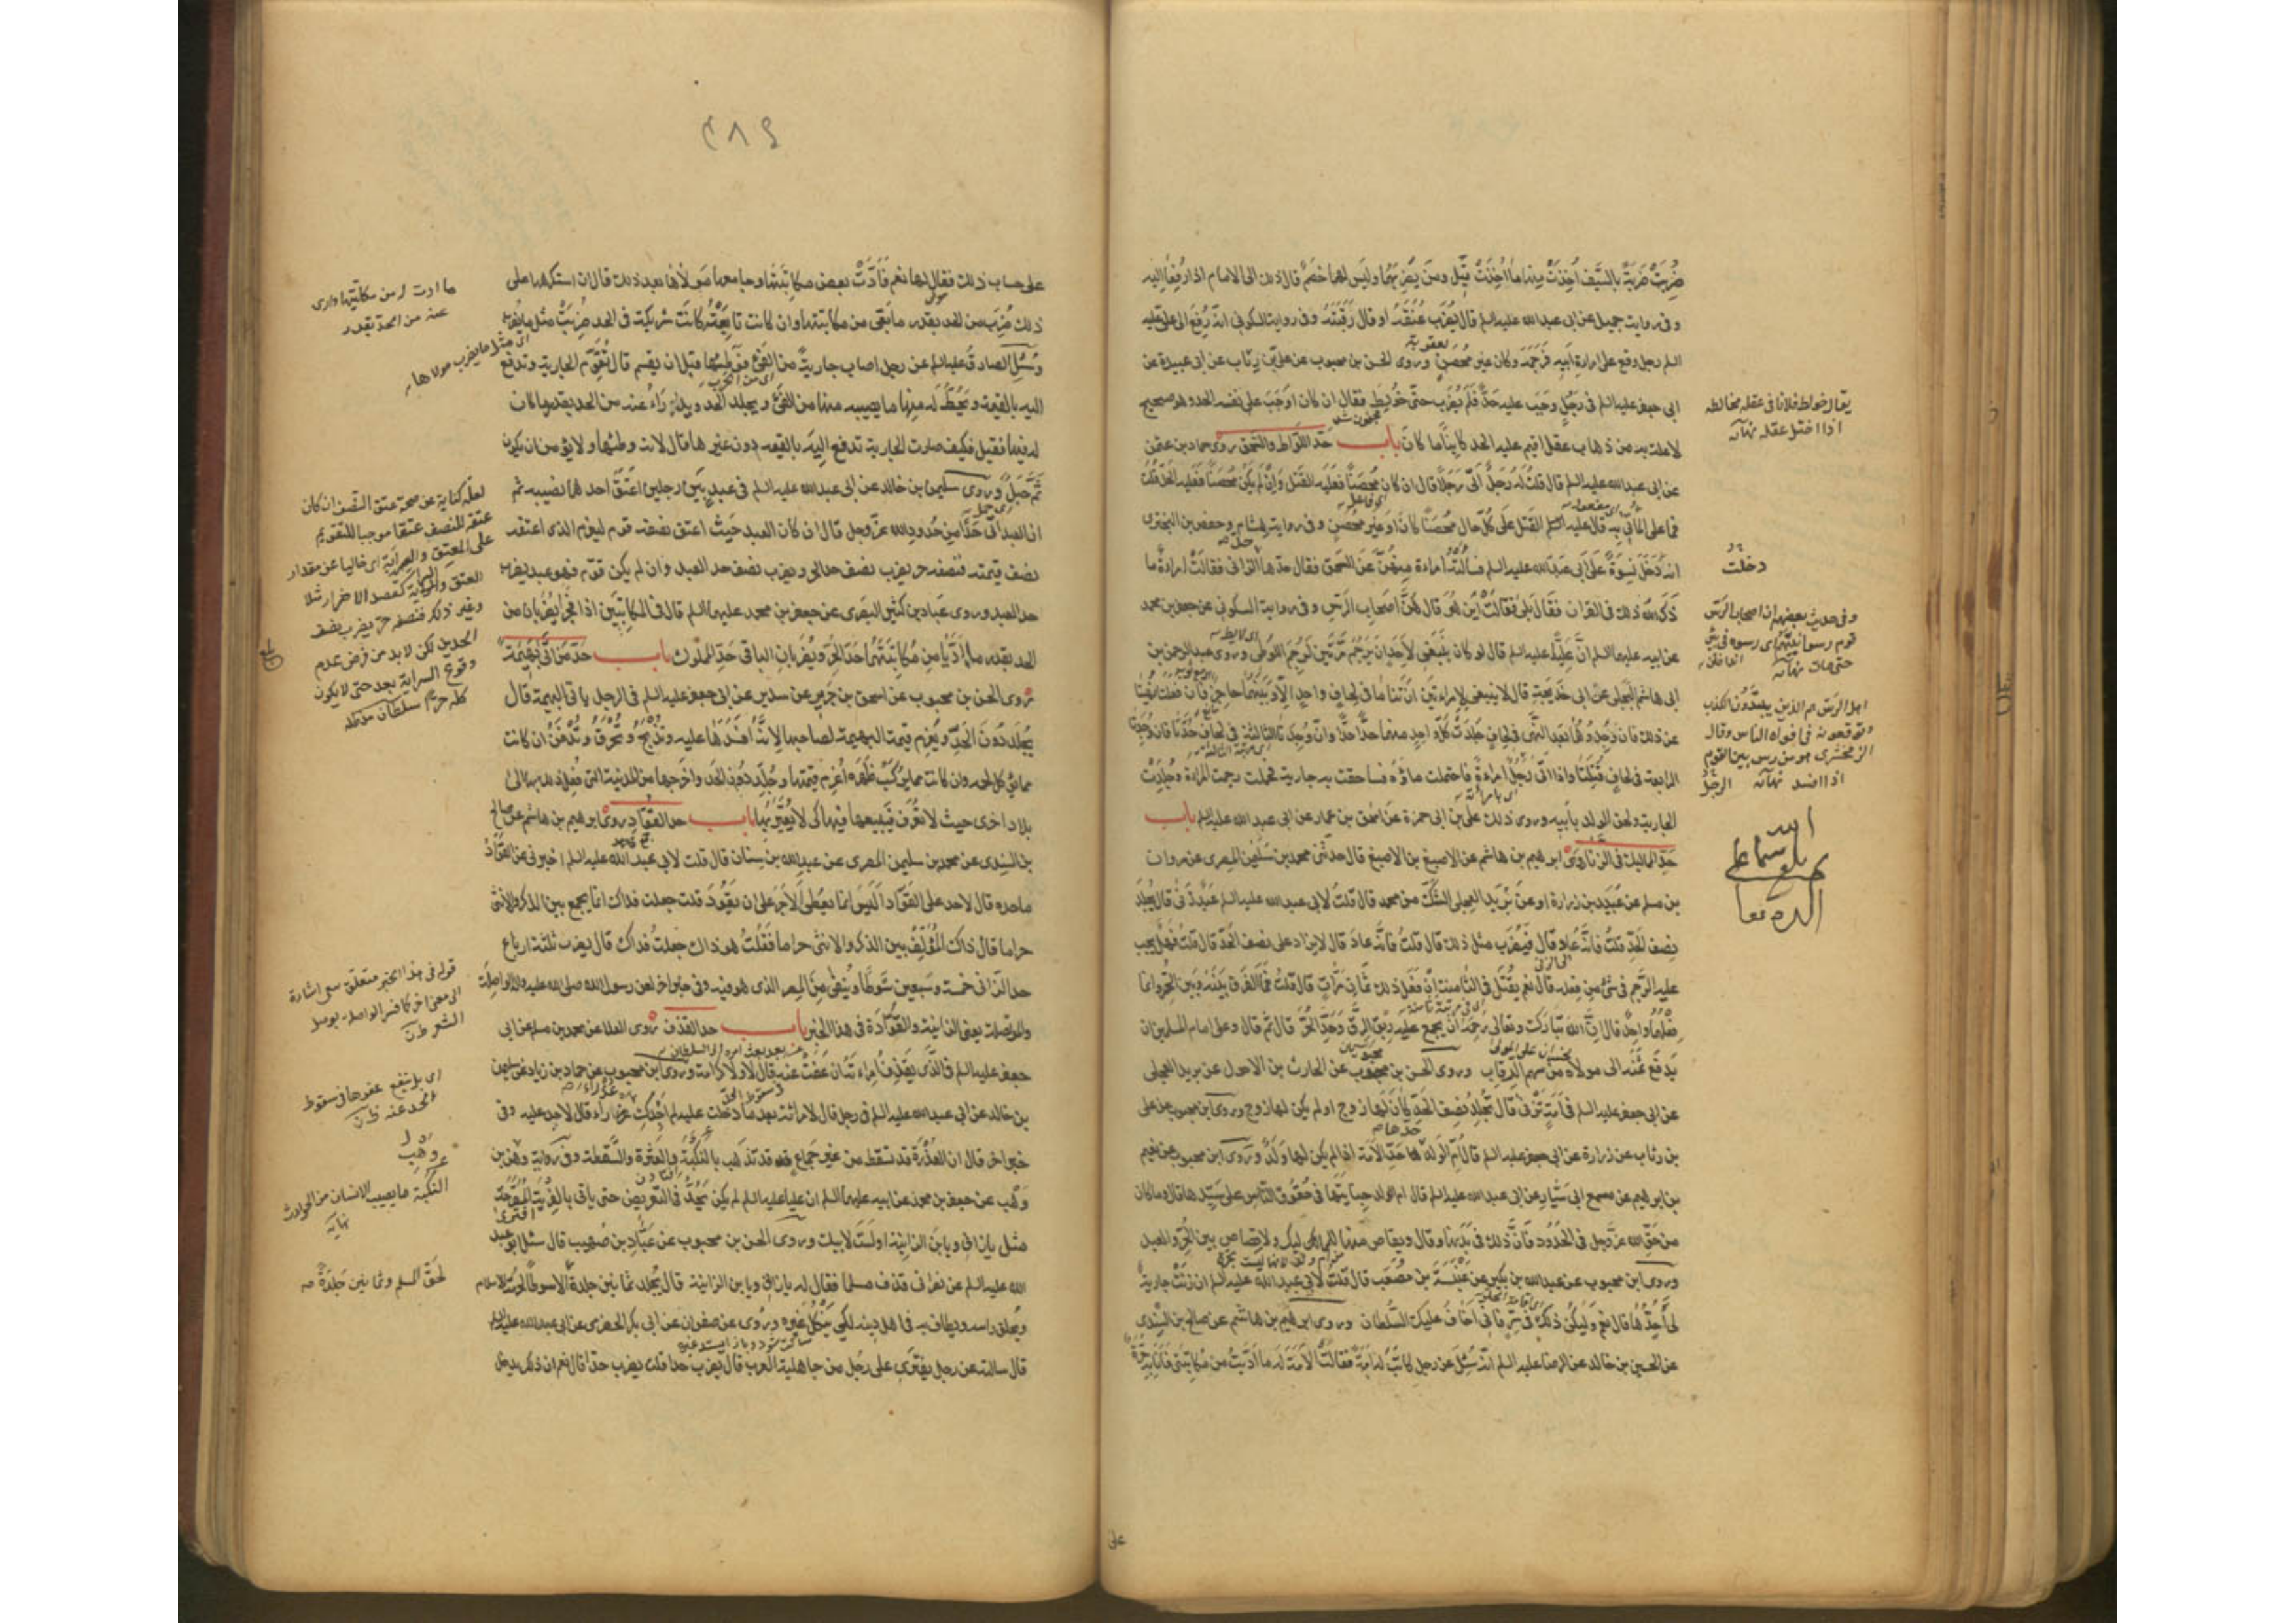 ضُرِبَتْ ضَرْبَةً بِالسَّيْفِ أَخَذَتْ مِنْهَا مَا أَخَذَتْ قيل ومن يضربهما وليس لهما خصم قال ذلك الى الامام اذا رفعا اليه
وفى رواية جميل عن ابى عبد الله عليه السلم قال يضرب عنقه او قال رقبته وفى رواية السكونى انه رفع الى على عليه
السلم رجل وقع على امراة ابيه فرجمه وكان غير محصن وروى الحسن بن محبوب عن على بن رئاب عن ابى عبيدة عن
ابى جعفر عليه السلم فى رجل وجب عليه حد فلم يضرب حتى خولط فقال ان كان اوجب على نفسه الحد وهو صحيح
لا علة به من ذهاب عقل اقيم عليه الحد كائنا ما كان باب حد اللواط والسحق روى حماد بن عثمن
عن ابى عبد الله عليه السلم قال قلت له رجل اتى رجلا قال ان كان محصنا فعليه القتل وان لم يكن محصنا فعليه الحد قلت
فما على المأتى به قال عليه القتل على كل حال محصنا كان او غير محصن وفى رواية هشام وحفص بن البخترى
انه دخل نسوة على ابى عبد الله عليه السلم فسألته امراة منهن عن السحق فقال حدها حد الزانى فقالت امراة ما
ذكر الله ذلك فى القران فقال بلى فقالت اين هو قال هن اصحاب الرس وفى رواية السكونى عن جعفر بن محمد
عن ابيه عليهما السلم ان عليا عليه السلم قال لو كان ينبغى لاحد ان يرجم مرتين لرجم اللوطى وروى عبد الرحمن بن
ابى هاشم البجلى عن ابى خديجة قال لا ينبغى لامراتين ان تناما فى لحاف واحد الا وبينهما حاجز فان فعلتا نهيتا
عن ذلك فان وجدوهما بعد النهى فى لحاف جلدت كل واحد منهما حدا حدا وان وجدتا الثالثة فى لحاف حدتا فان وجدتا
الرابعة فى لحاف قتلتا واذا اتى رجل امراة فاحتملت ماؤه فساحقت به جارية فحملت رجمت المراة وجلدت
الجارية ولحق الولد بابيه وروى ذلك على بن ابى حمزة عن اسحق بن عمار عن ابى عبد الله عليه السلم باب
حد المماليك فى الزنا روى ابرهيم بن هاشم عن الاصبغ بن الاصبغ قال حدثنى محمد بن سليمن المصرى عن مروان
بن مسلم عن عبيد بن زرارة او عن بريد العجلى الشك من محمد قال قلت لابى عبد الله عليه السلم عبد زنى قال يجلد
نصف الحد قلت فانه عاد قال فيضرب مثل ذلك قال قلت فانه عاد قال لا يزاد على نصف الحد قال قلت فهل يجب
عليه الرجم فى شئ من فعله قال نعم يقتل فى الثامنة ان فعل ذلك ثمان مرات قال قلت فما الفرق بينه وبين الحر وانما
فعلهما واحد قال ان الله تبارك وتعالى رحمه ان يجمع عليه ربق الرق وحد الحر قال ثم قال وعلى امام المسلمين ان
يدفع ثمنه الى مولاه من سهم الرقاب وروى الحسن بن محبوب عن الحارث بن الاحول عن بريد العجلى
عن ابى جعفر عليه السلم فى امة تزنى قال تجلد نصف الحد كان لها زوج او لم يكن لها زوج وروى ابن محبوب عن على
بن رئاب عن زرارة عن ابى جعفر عليه السلم قال ام الولد حدها حد الامة اذا لم يكن لها ولد وروى ابن محبوب عن نعيم
بن ابرهيم عن مسمع ابى سيار عن ابى عبد الله عليه السلم قال ام الولد جنايتها فى حقوق الناس على سيدها قال وما كان
من حق الله عز وجل فى الحدود فان ذلك فى بدنها وقال ويقاص منها للمماليك ولا قصاص بين الحر والعبد
وروى ابن محبوب عن عبد الله بن بكير عن عنبسة بن مصعب قال قلت لابى عبد الله عليه السلم ان زنت جارية
لى أحدها قال نعم وليكن ذلك فى سر فانى اخاف عليك السلطان وروى ابرهيم بن هاشم عن صالح بن السندى
عن الحسين بن خالد عن الرضا عليه السلم انه سئل عن رجل كاتب له امة فقالت الامة له ما اديت من مكاتبتى فانا به حرة
يقال خولط فلان فى عقله مخالطة
اذا اختل عقله نهاية
دخلت
وفى حديث بعضهم ان اصحاب الرس
قوم رسوا نبيهم اى رسوه فى بئر
حتى مات نهاية
اهل الرس هم الذين يبتدؤن الكذب
ويوقعونه فى افواه الناس وقال
الزمخشرى هو من رس بين القوم
اذا افسد نهاية
على
٢٨٤
على حساب ذلك فقال لها نعم فادت بعض مكاتبتها وجامعها مولاها بعد ذلك قال ان استكرهها على
ذلك ضرب من الحد بقدر ما بقى من مكاتبتها وان كانت تابعته كانت شريكته فى الحد ضربت مثل ما يضرب
وسئل الصادق عليه السلم عن رجل اصاب جارية من الفئ فوطئها قبل ان يقسم قال تقوم الجارية وتدفع
اليه بالقيمة ويحط له منها ما يصيبه منها من الفئ ويجلد الحد ويدرأ عنه من الحد بقدر ما كان
له فيها فقيل فكيف صارت الجارية تدفع اليه بالقيمة دون غيرها قال لانه وطئها ولا يؤمن ان يكون
ثم حبل وروى سليمن بن خالد عن ابى عبد الله عليه السلم فى عبد بين رجلين اعتق احدهما نصيبه ثم
ان العبد اتى حدا من حدود الله عز وجل قال ان كان العبد حيث اعتق نصفه قوم ليغرم الذى اعتقه
نصف قيمته فنصفه حر يضرب نصف حد الحر ويضرب نصف حد العبد وان لم يكن قوم فهو عبد يضرب
حد العبد وروى عباد بن كثير البصرى عن جعفر بن محمد عليهما السلم قال فى المكاتبين اذا فجرا يضربان من
الحد بقدر ما اديا من مكاتبتهما حد الحر ويضربان الباقى حد المملوك باب حد من اتى بهيمة
روى الحسن بن محبوب عن اسحق بن جرير عن سدير عن ابى جعفر عليه السلم فى الرجل ياتى البهيمة قال
يجلد دون الحد ويغرم قيمة البهيمة لصاحبها لانه افسدها عليه وتذبح وتحرق وتدفن ان كانت
مما يؤكل لحمه وان كانت مما يركب ظهره اغرم قيمتها وجلد دون الحد واخرجها من المدينة التى فعل ذلك بها الى
بلاد اخرى حيث لا تعرف فيبيعها فيها كى لا يعير بها باب حد القواد روى ابرهيم بن هاشم عن صالح
بن السندى عن محمد بن سليمن المصرى عن عبد الله بن سنان قال قلت لابى عبد الله عليه السلم اخبرنى عن القواد
ما حده قال لا حد على القواد اليس انما يعطى الاجر على ان يقود قلت جعلت فداك انما يجمع بين الذكر والانثى
حراما قال ذاك المؤلف بين الذكر والانثى حراما فقلت هو ذاك جعلت فداك قال يضرب ثلثة ارباع
حد الزانى خمسة وسبعين سوطا وينفى من المصر الذى هو فيه وفى خبر اخر لعن رسول الله صلى الله عليه واله الواصلة
والموتصلة يعنى الزانية والقوادة فى هذا الخبر باب حد القذف روى العلا عن محمد بن مسلم عن ابى
جعفر عليه السلم فى الذى يقذف امراته قال لا ولا كرامة وروى ابن محبوب عن حماد بن زياد عن سليمن
بن خالد عن ابى عبد الله عليه السلم فى رجل قال لامراته بعد ما دخلت عليه لم اجدك عذراء قال لا حد عليه وفى
خبر اخر قال ان العذرة قد تسقط من غير جماع قد تذهب بالنكبة والعثرة والسقطة وفى رواية وهب بن
وهب عن جعفر بن محمد عن ابيه عليهما السلم ان عليا عليه السلم لم يكن يحد فى التعريض حتى ياتى بالفرية المصرحة
مثل يا زانى ويا بن الزانية او لست لابيك وروى الحسن بن محبوب عن عباد بن صهيب قال سئل ابو عبد
الله عليه السلم عن نصرانى قذف مسلما فقال له يا زانى ويا بن الزانية قال يجلد ثمانين جلدة لحرمة الاسلام
ويحلق راسه ويطاف به فى اهل دينه لكى ينكل غيره وروى عن صفوان عن ابى بكر الحضرمى عن ابى عبد الله عليه السلم
قال سالته عن رجل يفترى على رجل من جاهلية العرب قال يضرب حدا قلت يضرب حدا قال نعم ان ذلك يدخل
ما ادت من مكاتبتها وادرئ
عنه من الحد بقدر
اى مثل ما يضرب مولاها
لعله كناية عن صحة عتق النصف ان كان
عتقه للنصف عتقا موجبا للتقويم
وغير ذلك فنصفه حر يضرب نصف
الحدين لكن لا بد من فرض عدم
وقوع السراية بعد حتى لا يكون
كله حرا سلطان
قوله فى هذا الخبر متعلق
الشعر
اى بل ينفع عفوها فى سقوط
الحد عنه
وهب
النكبة ما يصيب الانسان من الحوادث
نهاية
لحق المسلم وثمانين جلدة